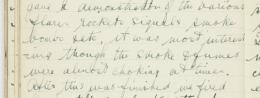 gave a demonstration of the various
flares rockets signals smoke
bombs etc, it was most interest
ing though the smoke & fumes
were almost choking at times.
After this was finished we fired